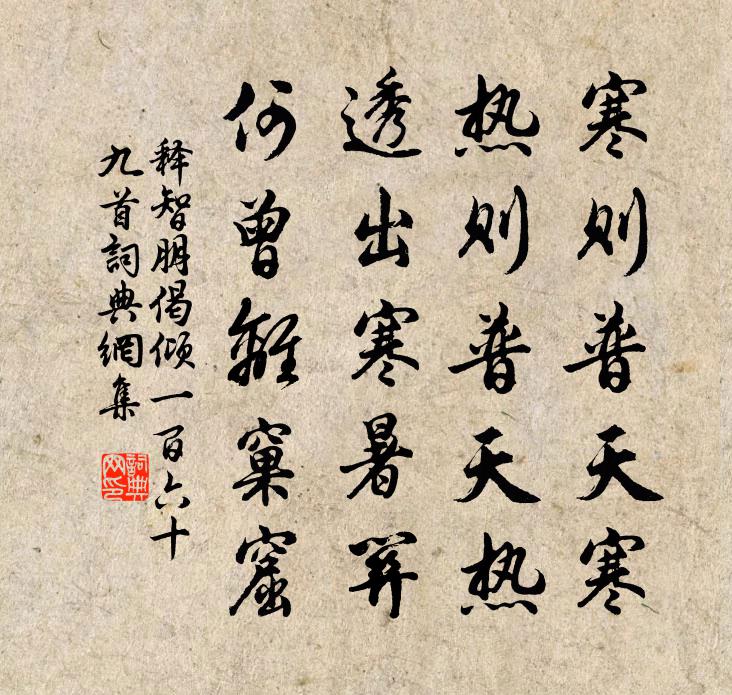 寒则普天寒
热则普天热
透出寒暑关
何曾離窠窟
释智朋偈倾一百六十
九首詞典網集
詞典网印